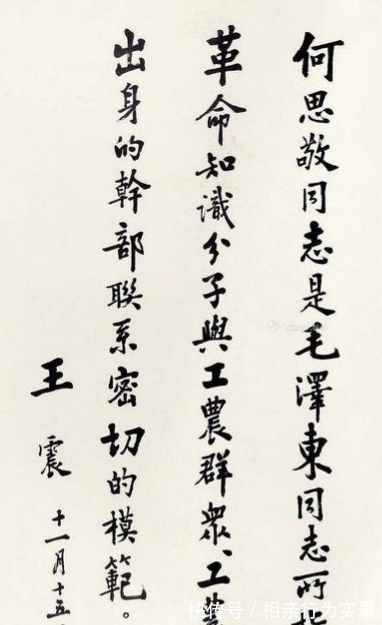 何思敬同志是毛澤東同志所
革命知識分子與工農群眾、工
出身的幹部聯系密切的模範。
王震
十一月十五
快传号/相亲行为实录